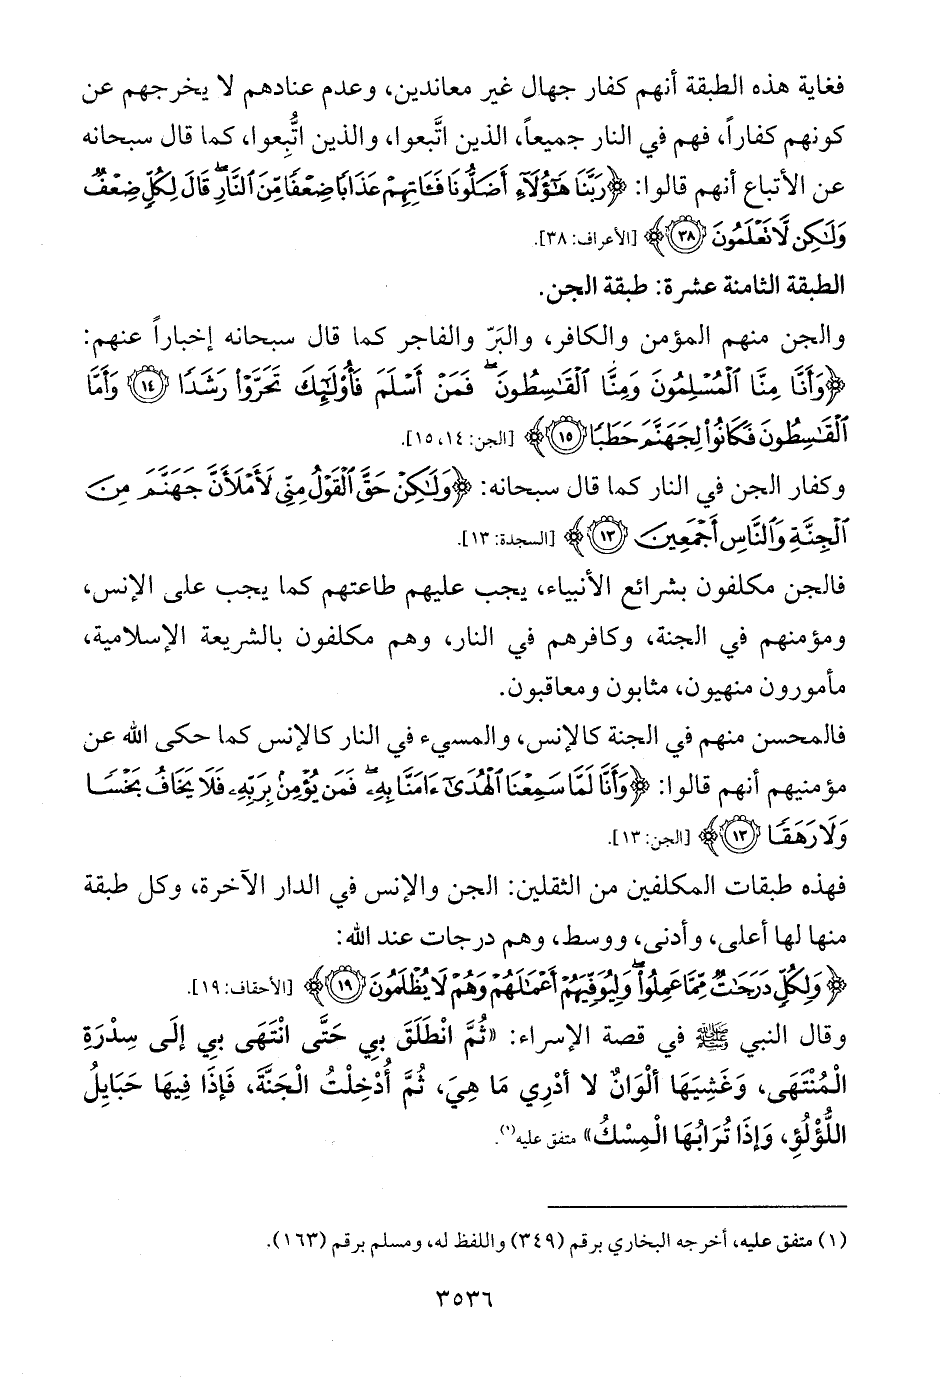 فغاية هذه الطبقة أنهم كفار جهال غير معاندين، وعدم عنادهم لا يخرجهم عن
كونهم كفاراً، فهم في النار جميعاً، الذين اتَّبعوا، والذين اتُّبِعوا، كما قال سبحانه
عن الأتباع أنهم قالوا: ﴿رَبَّنَا هَٰٓؤُلَآءِ أَضَلُّونَا فَـَٔاتِهِمۡ عَذَابٗا ضِعۡفٗا مِّنَ ٱلنَّارِۖ قَالَ لِكُلّٖ ضِعۡفٞ
وَلَٰكِن لَّا تَعۡلَمُونَ ٣٨﴾ [الأعراف: ٣٨].
الطبقة الثامنة عشرة: طبقة الجن.
والجن منهم المؤمن والكافر، والبَرّ والفاجر كما قال سبحانه إخباراً عنهم:
﴿وَأَنَّا مِنَّا ٱلۡمُسۡلِمُونَ وَمِنَّا ٱلۡقَٰسِطُونَۖ فَمَنۡ أَسۡلَمَ فَأُوْلَٰٓئِكَ تَحَرَّوۡاْ رَشَدٗا ١٤ وَأَمَّا
ٱلۡقَٰسِطُونَ فَكَانُواْ لِجَهَنَّمَ حَطَبٗا ١٥﴾ [الجن: ١٤، ١٥].
وكفار الجن في النار كما قال سبحانه: ﴿وَلَٰكِنۡ حَقَّ ٱلۡقَوۡلُ مِنِّي لَأَمۡلَأَنَّ جَهَنَّمَ مِنَ
ٱلۡجِنَّةِ وَٱلنَّاسِ أَجۡمَعِينَ ١٣﴾ [السجدة: ١٣].
فالجن مكلفون بشرائع الأنبياء، يجب عليهم طاعتهم كما يجب على الإنس،
ومؤمنهم في الجنة، وكافرهم في النار، وهم مكلفون بالشريعة الإسلامية،
مأمورون منهيون، مثابون ومعاقبون.
فالمحسن منهم في الجنة كالإنس، والمسيء في النار كالإنس كما حكى الله عن
مؤمنيهم أنهم قالوا: ﴿وَأَنَّا لَمَّا سَمِعۡنَا ٱلۡهُدَىٰٓ ءَامَنَّا بِهِۦۖ فَمَن يُؤۡمِنۢ بِرَبِّهِۦ فَلَا يَخَافُ بَخۡسٗا
وَلَا رَهَقٗا ١٣﴾ [الجن: ١٣].
فهذه طبقات المكلفين من الثقلين: الجن والإنس في الدار الآخرة، وكل طبقة
منها لها أعلى، وأدنى، ووسط، وهم درجات عند الله:
﴿وَلِكُلّٖ دَرَجَٰتٞ مِّمَّا عَمِلُواْۖ وَلِيُوَفِّيَهُمۡ أَعۡمَٰلَهُمۡ وَهُمۡ لَا يُظۡلَمُونَ ١٩﴾ [الأحقاف: ١٩].
وقال النبي ﷺ في قصة الإسراء: «ثُمَّ انْطَلَقَ بِي حَتَّى انْتَهَى بِي إلَى سِدْرَةِ
الْمُنْتَهَى، وَغَشِيَهَا ألْوَانٌ لا أدْرِي مَا هِيَ، ثُمَّ أُدْخِلْتُ الْجَنَّةَ، فَإذَا فِيهَا حَبَايِلُ
اللُّؤْلُؤِ، وَإذَا تُرَابُهَا الْمِسْكُ» متفق عليه(١).
(١) متفق عليه، أخرجه البخاري برقم (٣٤٩) واللفظ له، ومسلم برقم (١٦٣).
٣٥٣٦